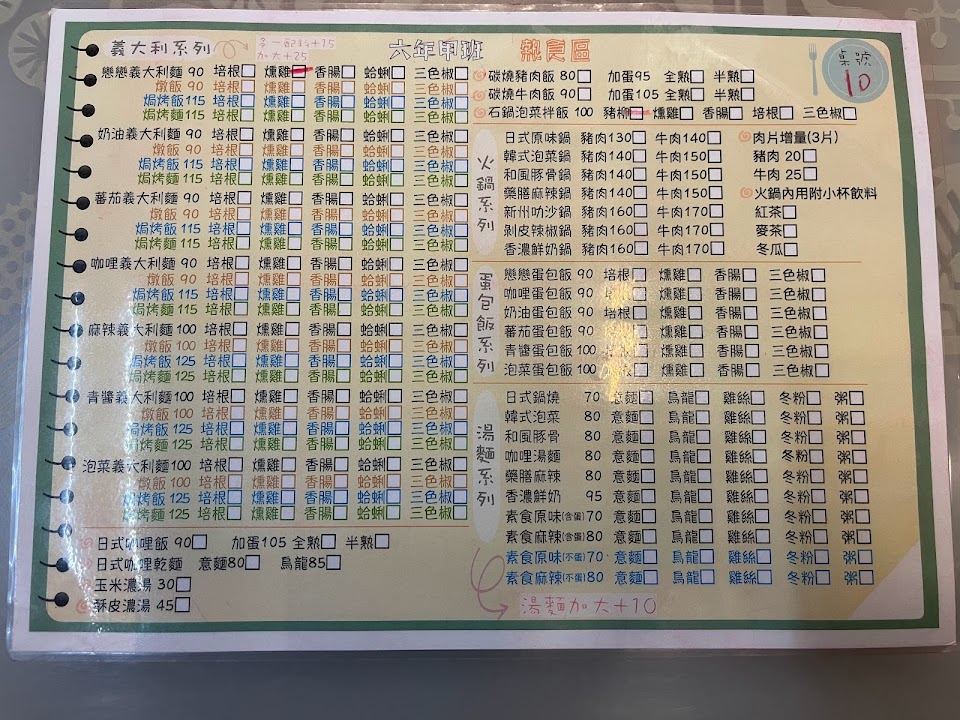 六年甲班 熱食區
桌號
10
義大利系列
多一配料+15
加大+25
戀戀義大利麵 90 培根□ 燻雞□ 香腸□ 蛤蜊□ 三色椒□
燉飯 90 培根□ 燻雞□ 香腸□ 蛤蜊□ 三色椒□
焗烤飯 115 培根□ 燻雞□ 香腸□ 蛤蜊□ 三色椒□
焗烤麵 115 培根□ 燻雞□ 香腸□ 蛤蜊□ 三色椒□
奶油義大利麵 90 培根□ 燻雞□ 香腸□ 蛤蜊□ 三色椒□
燉飯 90 培根□ 燻雞□ 香腸□ 蛤蜊□ 三色椒□
焗烤飯 115 培根□ 燻雞□ 香腸□ 蛤蜊□ 三色椒□
焗烤麵 115 培根□ 燻雞□ 香腸□ 蛤蜊□ 三色椒□
蕃茄義大利麵 90 培根□ 燻雞□ 香腸□ 蛤蜊□ 三色椒□
燉飯 90 培根□ 燻雞□ 香腸□ 蛤蜊□ 三色椒□
焗烤飯 115 培根□ 燻雞□ 香腸□ 蛤蜊□ 三色椒□
焗烤麵 115 培根□ 燻雞□ 香腸□ 蛤蜊□ 三色椒□
咖哩義大利麵 90 培根□ 燻雞□ 香腸□ 蛤蜊□ 三色椒□
燉飯 90 培根□ 燻雞□ 香腸□ 蛤蜊□ 三色椒□
焗烤飯 115 培根□ 燻雞□ 香腸□ 蛤蜊□ 三色椒□
焗烤麵 115 培根□ 燻雞□ 香腸□ 蛤蜊□ 三色椒□
麻辣義大利麵 100 培根□ 燻雞□ 香腸□ 蛤蜊□ 三色椒□
燉飯 100 培根□ 燻雞□ 香腸□ 蛤蜊□ 三色椒□
焗烤飯 125 培根□ 燻雞□ 香腸□ 蛤蜊□ 三色椒□
焗烤麵 125 培根□ 燻雞□ 香腸□ 蛤蜊□ 三色椒□
青醬義大利麵 100 培根□ 燻雞□ 香腸□ 蛤蜊□ 三色椒□
燉飯 100 培根□ 燻雞□ 香腸□ 蛤蜊□ 三色椒□
焗烤飯 125 培根□ 燻雞□ 香腸□ 蛤蜊□ 三色椒□
焗烤麵 125 培根□ 燻雞□ 香腸□ 蛤蜊□ 三色椒□
泡菜義大利麵 100 培根□ 燻雞□ 香腸□ 蛤蜊□ 三色椒□
燉飯 100 培根□ 燻雞□ 香腸□ 蛤蜊□ 三色椒□
焗烤飯 125 培根□ 燻雞□ 香腸□ 蛤蜊□ 三色椒□
焗烤麵 125 培根□ 燻雞□ 香腸□ 蛤蜊□ 三色椒□
日式咖哩飯 90□ 加蛋105 全熟□ 半熟□
日式咖哩乾麵 意麵80□ 烏龍85□
玉米濃湯 30□
酥皮濃湯 45□
碳燒豬肉飯 80□ 加蛋95 全熟□ 半熟□
碳燒牛肉飯 90□ 加蛋105 全熟□ 半熟□
石鍋泡菜拌飯 100 豬柳□ 燻雞□ 香腸□ 培根□ 三色椒□
火鍋系列
日式原味鍋 豬肉130□ 牛肉140□
韓式泡菜鍋 豬肉140□ 牛肉150□
和風豚骨鍋 豬肉140□ 牛肉150□
藥膳麻辣鍋 豬肉140□ 牛肉150□
新州叻沙鍋 豬肉160□ 牛肉170□
剝皮辣椒鍋 豬肉160□ 牛肉170□
香濃鮮奶鍋 豬肉160□ 牛肉170□
肉片增量(3片)
豬肉 20□
牛肉 25□
火鍋內用附小杯飲料
紅茶□
麥茶□
冬瓜□
蛋包飯系列
戀戀蛋包飯 90 培根□ 燻雞□ 香腸□ 三色椒□
咖哩蛋包飯 90 培根□ 燻雞□ 香腸□ 三色椒□
奶油蛋包飯 90 培根□ 燻雞□ 香腸□ 三色椒□
蕃茄蛋包飯 90 培根□ 燻雞□ 香腸□ 三色椒□
青醬蛋包飯 100 培根□ 燻雞□ 香腸□ 三色椒□
泡菜蛋包飯 100 培根□ 燻雞□ 香腸□ 三色椒□
湯麵系列
日式鍋燒 70 意麵□ 烏龍□ 雞絲□ 冬粉□ 粥□
韓式泡菜 80 意麵□ 烏龍□ 雞絲□ 冬粉□ 粥□
和風豚骨 80 意麵□ 烏龍□ 雞絲□ 冬粉□ 粥□
咖哩湯麵 80 意麵□ 烏龍□ 雞絲□ 冬粉□ 粥□
藥膳麻辣 80 意麵□ 烏龍□ 雞絲□ 冬粉□ 粥□
香濃鮮奶 95 意麵□ 烏龍□ 雞絲□ 冬粉□ 粥□
素食原味(含蛋)70 意麵□ 烏龍□ 雞絲□ 冬粉□ 粥□
素食麻辣(含蛋)80 意麵□ 烏龍□ 雞絲□ 冬粉□ 粥□
素食原味(不蛋)70 意麵□ 烏龍□ 雞絲□ 冬粉□ 粥□
素食麻辣(不蛋)80 意麵□ 烏龍□ 雞絲□ 冬粉□ 粥□
湯麵加大+10